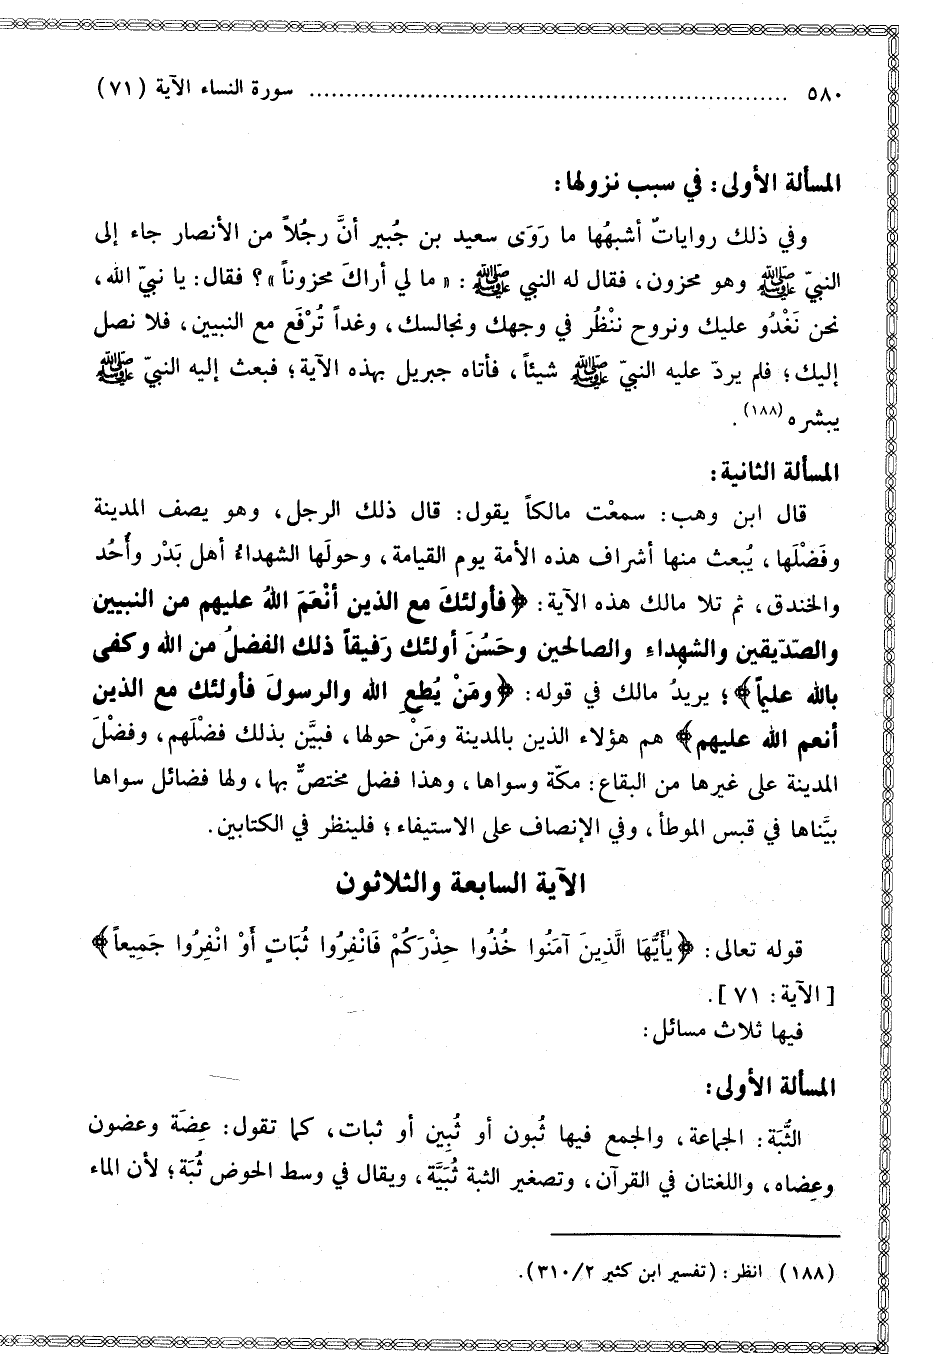 ٥٨٠ ............................................................... سورة النساء الآية (٧١)
المسألة الأولى: في سبب نزولها:
وفي ذلك رواياتٌ أشبهُها ما رَوَى سعيد بن جُبير أنَّ رجُلاً من الأنصار جاء إلى
النبيّ ﷺ وهو محزون، فقال له النبي ﷺ: «ما لي أراكَ محزوناً»؟ فقال: يا نبيّ الله،
نحن نَغْدُو عليك ونروح ننْظُر في وجهك ونجالسك، وغداً تُرْفَع مع النبيين، فلا نصل
إليك؛ فلم يردّ عليه النبيّ ﷺ شيئاً، فأتاه جبريل بهذه الآية؛ فبعث إليه النبيّ ﷺ
يبشره (١٨٨).
المسألة الثانية:
قال ابن وهب: سمعْت مالكاً يقول: قال ذلك الرجل، وهو يصف المدينة
وفَضْلَها، يُبعث منها أشراف هذه الأمة يوم القيامة، وحولَها الشهداءُ أهل بَدْر وأُحُد
والخندق، ثم تلا مالك هذه الآية: ﴿فأولئكَ مع الذين أنْعَمَ اللهُ عليهم من النبيين
والصّدّيقين والشهداءِ والصالحين وحَسُنَ أولئك رَفيقاً ذلك الفضلُ من الله وكفى
بالله عليماً﴾؛ يريدُ مالك في قوله: ﴿ومَنْ يُطعِ الله والرسولَ فأولئك مع الذين
أنعم الله عليهم﴾ هم هؤلاء الذين بالمدينة ومَنْ حولها، فبيَّن بذلك فضْلَهم، وفضْلَ
المدينة على غيرها من البقاع: مكّة وسواها، وهذا فضل مختصٌّ بها، ولها فضائل سواها
بيَّناها في قبس الموطأ، وفي الإنصاف على الاستيفاء؛ فلينظر في الكتابين.
الآية السابعة والثلاثون
قوله تعالى: ﴿يٰأَيُّهَا الَّذِينَ آمَنُوا خُذُوا حِذْرَكُمْ فَانْفِرُوا ثُبَاتٍ أَوْ انْفِرُوا جَمِيعاً﴾
[الآية: ٧١].
فيها ثلاث مسائل:
المسألة الأولى:
الثُّبَة: الجماعة، والجمع فيها ثُبون أو ثُبِين أو ثبات، كما تقول: عِضَة وعضون
وعِضاه، واللغتان في القرآن، وتصغير الثبة ثُبَيَّة، ويقال في وسط الحوض ثُبَة؛ لأن الماء
(١٨٨) انظر: (تفسير ابن كثير ٣١٠/٢).